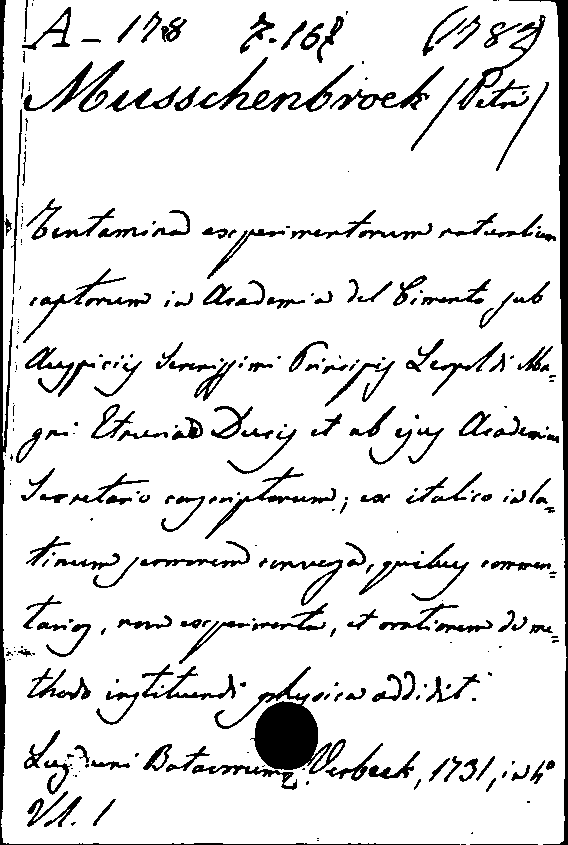 A - 178 7.168 (1782)
Musschenbroek (Petri)
Tentamina experimentorum naturalium
captorum in Academia del Cimento sub
Auspiciis Serenissimi Principis Leopoldi Ma=
gni Etruriae Ducis et ab ejus Academiae
Secretario conscriptorum; ex italico in la=
tinum sermonem conversa, quibus commen=
tarios, nova experimenta, et orationem de me=
thodo instituendi physica addidit.
Lugduni Batavorum, Verbeek, 1731, in 4º
Vl. 1